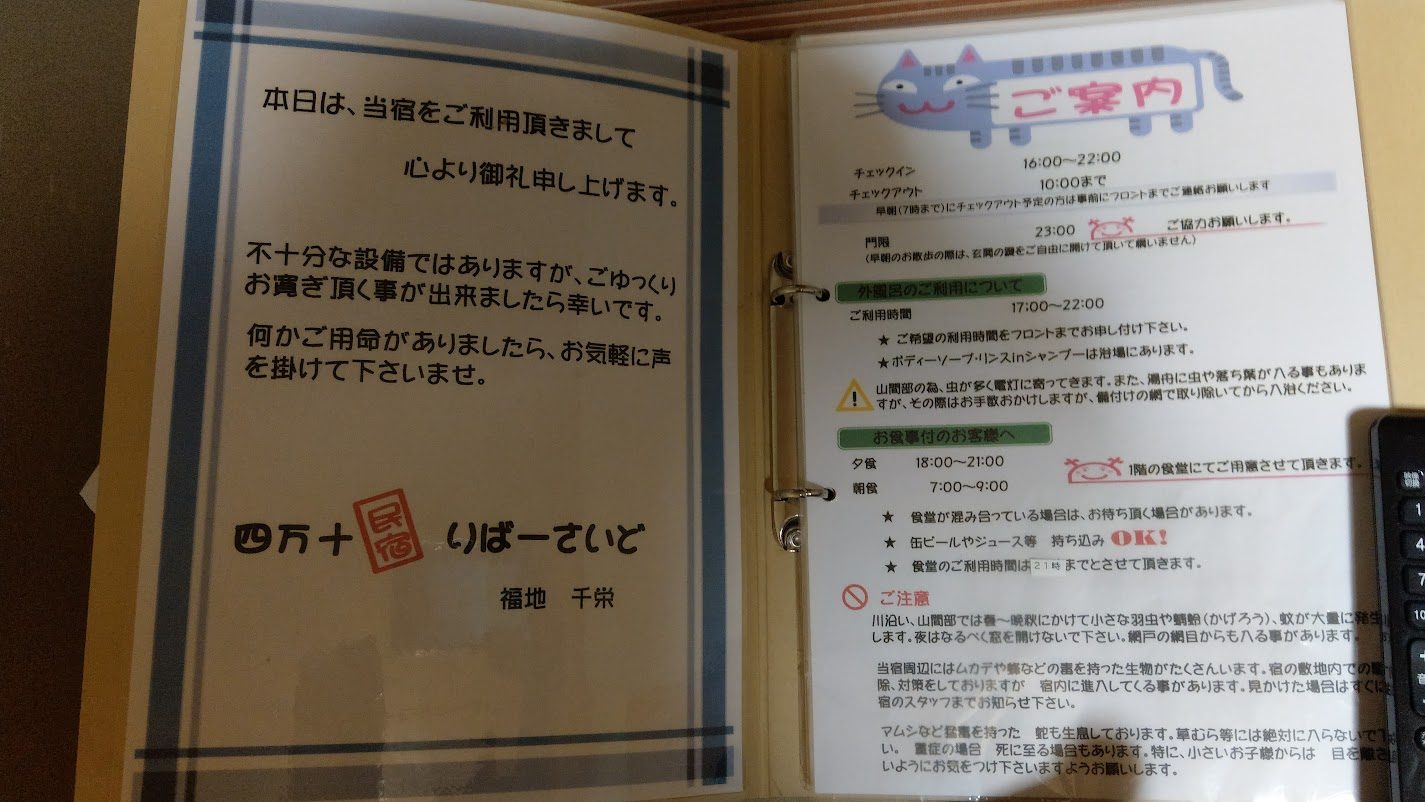 本日は、当宿をご利用頂きまして
心より御礼申し上げます。
不十分な設備ではありますが、ごゆっくり
お寛ぎ頂く事が出来ましたら幸いです。
何かご用命がありましたら、お気軽に声
を掛けて下さいませ。
四万十 民宿 りばーさいど
福地 千栄
ご案内
チェックイン 16:00～22:00
チェックアウト 10:00まで
早朝(7時まで)にチェックアウト予定の方は事前にフロントまでご連絡お願いします
門限 23:00 ご協力お願いします。
(早朝のお散歩の際は、玄関の鍵をご自由に開けて頂いて構いません)
外風呂のご利用について
ご利用時間 17:00～22:00
★ ご希望の利用時間をフロントまでお申し付け下さい。
★ボディーソープ・リンスinシャンプーは浴場にあります。
山間部の為、虫が多く電灯に寄ってきます。また、湯舟に虫や落ち葉が入る事もありま
すが、その際はお手数おかけしますが、備付けの網で取り除いてから入浴ください。
お食事付のお客様へ
夕食 18:00～21:00 1階の食堂にてご用意させて頂きます。
朝食 7:00～9:00
★ 食堂が混み合っている場合は、お待ち頂く場合があります。
★ 缶ビールやジュース等 持ち込み OK!
★ 食堂のご利用時間は21時までとさせて頂きます。
ご注意
川沿い、山間部では春～晩秋にかけて小さな羽虫や蜉蝣(かげろう)、蚊が大量に発生
します。夜はなるべく窓を開けないで下さい。網戸の網目からも入る事があります。
当宿周辺にはムカデや蜂などの毒を持った生物がたくさんいます。宿の敷地内での
除、対策をしておりますが 宿内に進入してくる事があります。見かけた場合はすぐに
宿のスタッフまでお知らせ下さい。
マムシなど猛毒を持った 蛇も生息しております。草むら等には絶対に入らないで下
い。 重症の場合 死に至る場合もあります。特に、小さいお子様からは 目を離さ
いようにお気をつけ下さいますようお願いします。
1
4
7
10